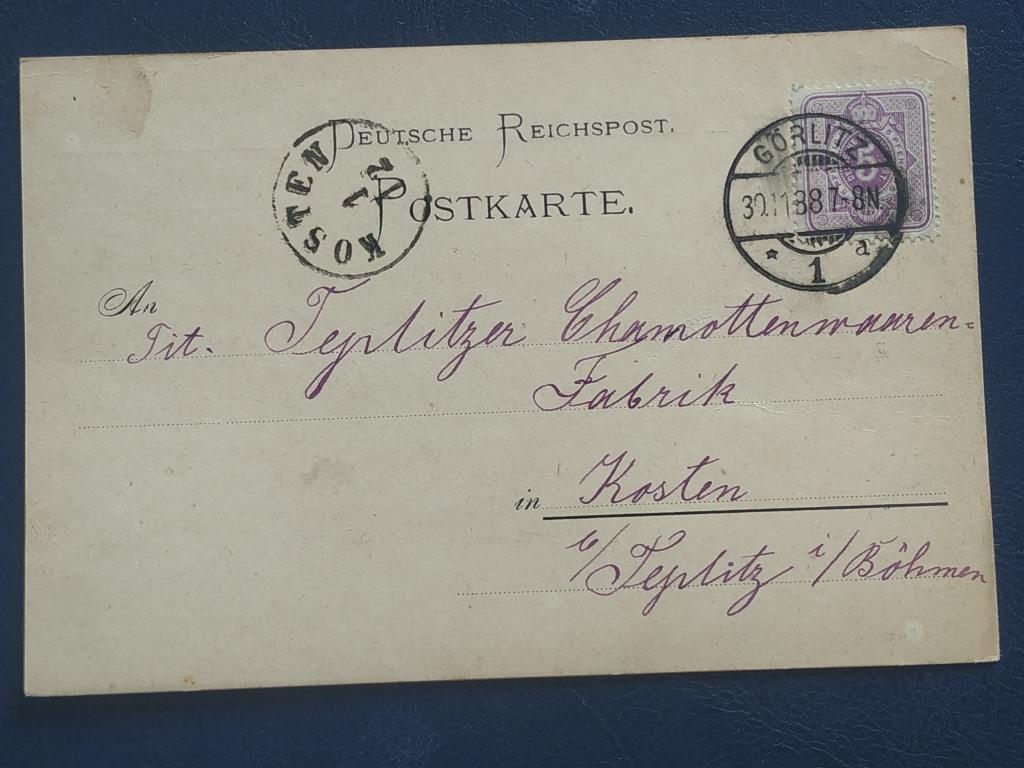 DEUTSCHE REICHSPOST.
POSTKARTE.
KOSTEN
GÖRLITZ
30.11.88 7-8N.
* 1 a
5
PFENNIG
An
Tit. Teplitzer Chamottenwaaren-
Fabrik
in Kosten
b/ Teplitz i/ Böhmen